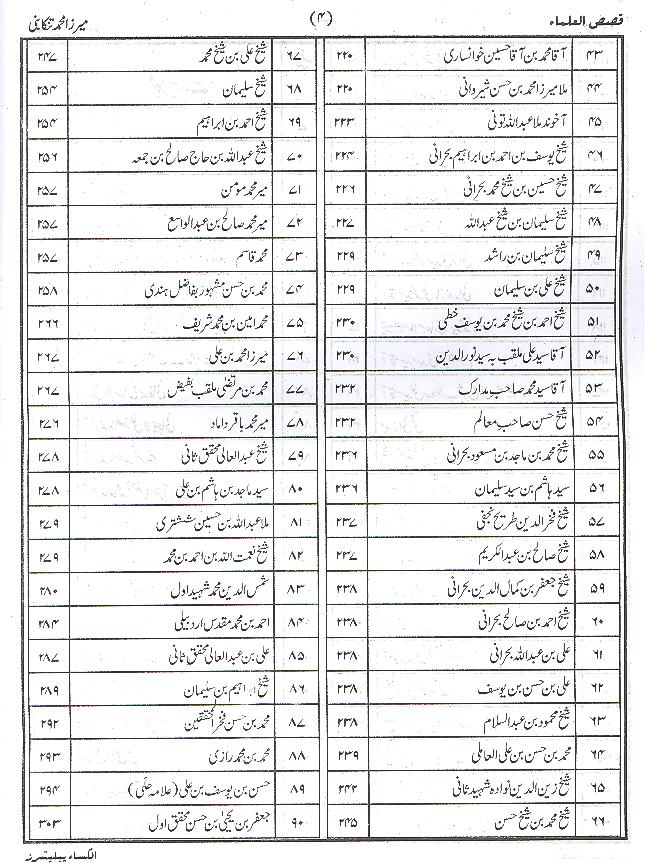 قصص العلماء (۴) میرزا محمد تنکابنی
۴۳ آقا محمد بن آقا حسین خوانساری ۲۲۰
۴۴ ملا میرزا محمد بن حسن شیروانی ۲۲۰
۴۵ آخوند ملا عبداللہ تونی ۲۲۳
۴۶ شیخ یوسف بن احمد بن ابراہیم بحرانی ۲۲۴
۴۷ شیخ حسین بن شیخ محمد بحرانی ۲۲۶
۴۸ شیخ سلیمان بن شیخ عبداللہ ۲۲۷
۴۹ شیخ سلیمان بن راشد ۲۲۹
۵۰ شیخ علی بن سلیمان ۲۲۹
۵۱ شیخ احمد بن شیخ محمد بن یوسف خطی ۲۳۰
۵۲ آقا سید علی ملقب بہ سید نورالدین ۲۳۰
۵۳ آقا سید محمد صاحب مدارک ۲۳۲
۵۴ شیخ حسن صاحب معالم ۲۳۲
۵۵ شیخ محمد بن ماجد بن مسعود بحرانی ۲۳۶
۵۶ سید ہاشم بن سید سلیمان ۲۳۶
۵۷ شیخ فخرالدین طریح نجفی ۲۳۷
۵۸ شیخ صالح بن عبدالکریم ۲۳۷
۵۹ شیخ جعفر بن کمال الدین بحرانی ۲۳۸
۶۰ شیخ احمد بن صالح بحرانی ۲۳۸
۶۱ علی بن عبداللہ بحرانی ۲۳۸
۶۲ علی بن حسن بن یوسف ۲۳۸
۶۳ شیخ محمود بن عبدالسلام ۲۳۸
۶۴ محمد بن حسن بن علی العاملی ۲۳۹
۶۵ شیخ زین الدین نوادہ شہید ثانی ۲۴۲
۶۶ شیخ محمد بن شیخ حسن ۲۴۵
۶۷ شیخ علی بن شیخ محمد ۲۴۷
۶۸ شیخ سلیمان ۲۵۴
۶۹ شیخ احمد بن ابراہیم ۲۵۴
۷۰ شیخ عبداللہ بن حاج صالح بن جمعہ ۲۵۶
۷۱ میر محمد مومن ۲۵۷
۷۲ میر محمد صالح بن عبدالواسع ۲۵۷
۷۳ محمد قاسم ۲۵۷
۷۴ محمد بن حسن مشہور بفاضل ہندی ۲۵۸
۷۵ محمد امین بن محمد شریف ۲۶۶
۷۶ میرزا محمد بن علی ۲۶۷
۷۷ محمد بن مرتضٰی ملقب بفیض ۲۶۷
۷۸ میر محمد باقر داماد ۲۷۶
۷۹ شیخ عبدالعالی محقق ثانی ۲۷۸
۸۰ سید ماجد بن ہاشم بن علی ۲۷۸
۸۱ ملا عبداللہ بن حسین ششتری ۲۷۹
۸۲ شیخ نعمت اللہ بن احمد بن محمد ۲۷۹
۸۳ شمس الدین محمد شہید اول ۲۸۰
۸۴ احمد بن محمد مقدس اردبیلی ۲۸۴
۸۵ علی بن عبدالعالی محقق ثانی ۲۸۷
۸۶ شیخ ابراہیم بن سلیمان ۲۸۹
۸۷ محمد بن حسن فخر المحققین ۲۹۲
۸۸ محمد بن محمد رازی ۲۹۳
۸۹ حسن بن یوسف بن علی (علامہ حلّی) ۲۹۴
۹۰ جعفر بن یحیٰی بن حسن محقق اول ۳۰۳
الکساء پبلیشرز